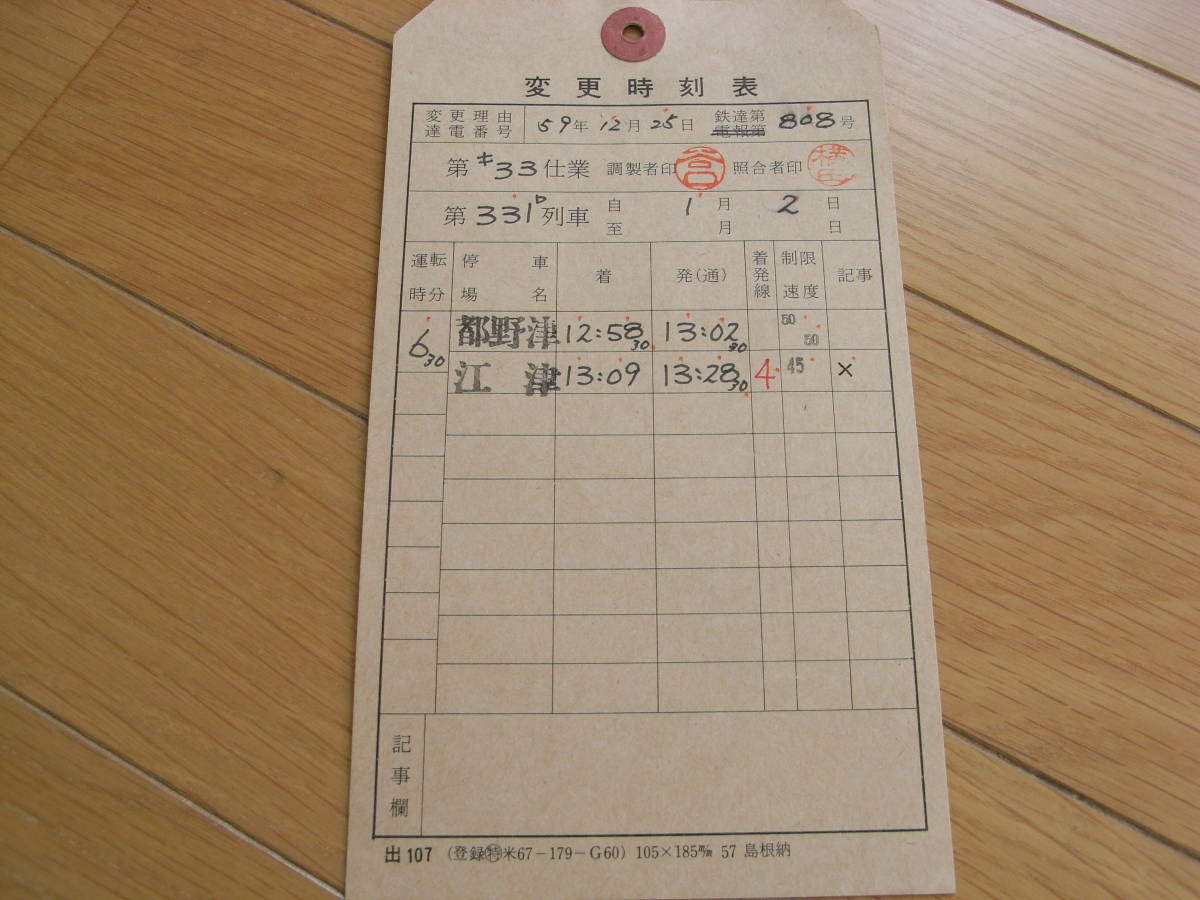 変更時刻表
変更理由 達電番号 59年12月25日 鉄達第 電報第 808号
第キ33仕業 調製者印 倉 照合者印
第331D列車 自 1月2日
至 月 日
運転時分 停車場名 着 発(通) 着発線 制限速度 記事
6 30 都野津 12:58 30 13:02 30 50 50
江津 13:09 13:28 30 4 45 ×
記事欄
出107 (登録㊕米67-179-G60) 105×185㎜ 57 島根納